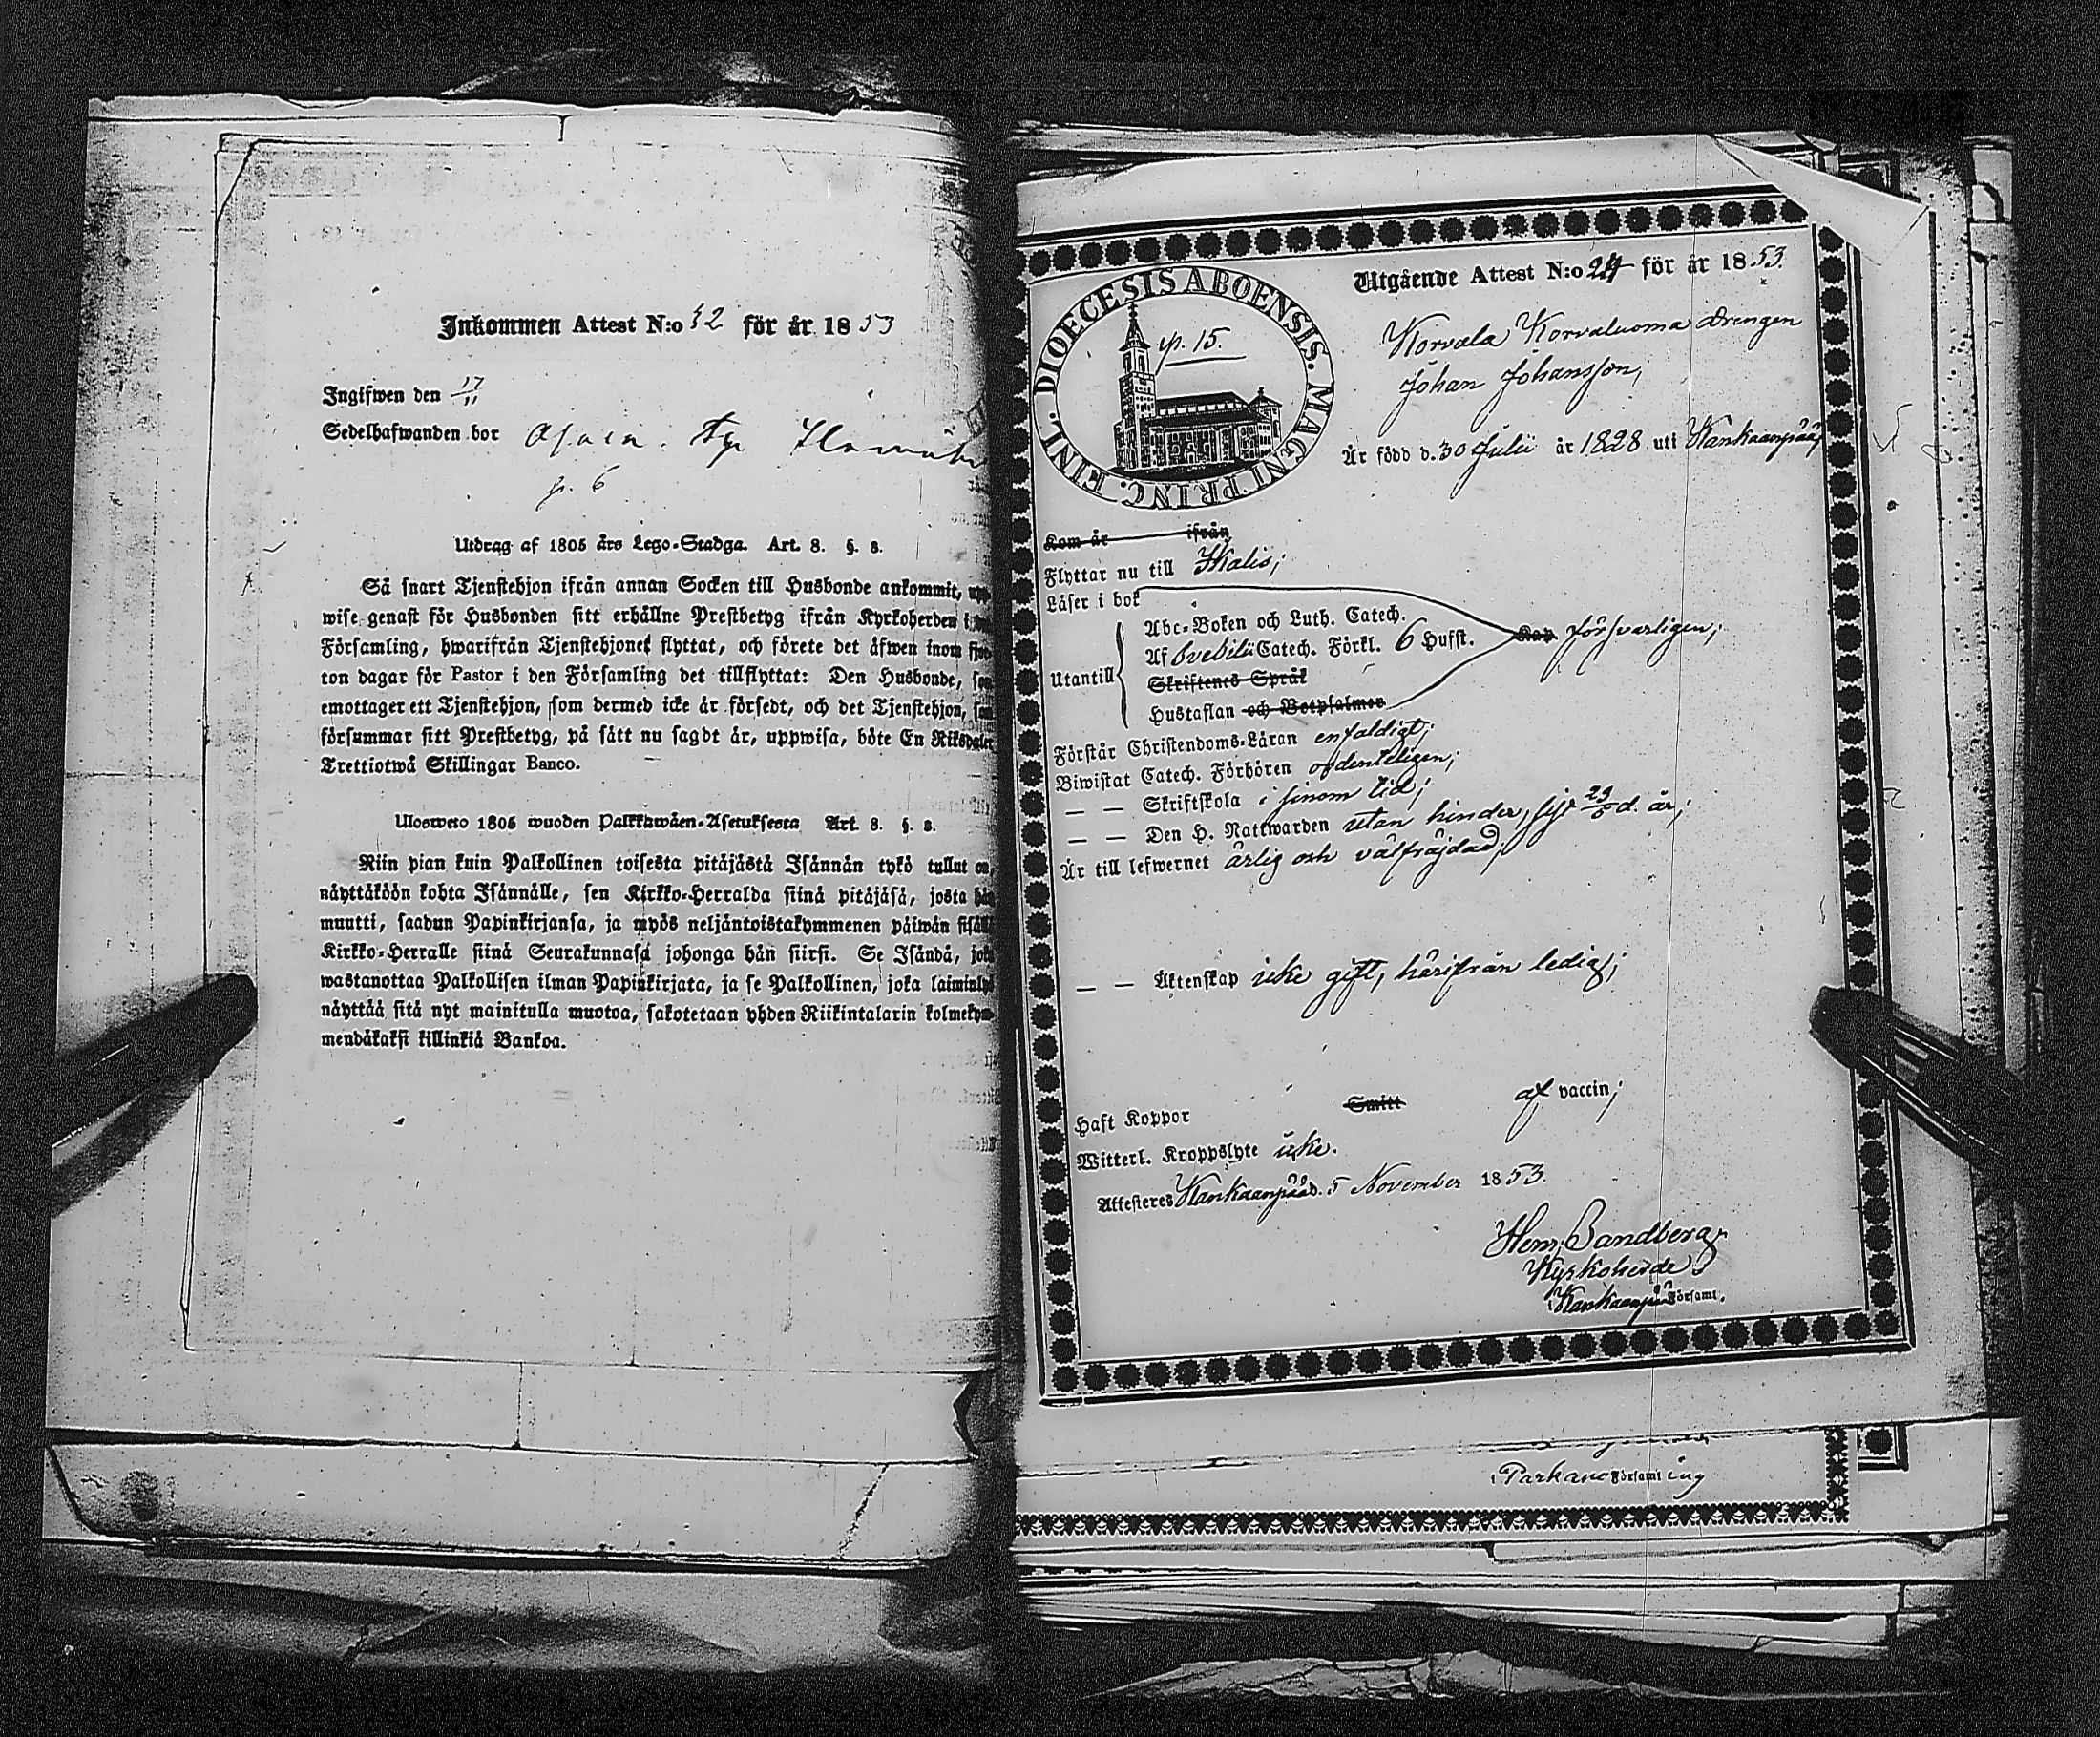 Inkommen Attest N:o 32 för år 1853
Ingifwen den 17/11
Sedelhafwanden bor
p. 6
Utdrag af 1805 års Lego-Stadga. Art. 8. §. 8.
Så snart Tjenstehjon ifrån annan Socken till Husbonde ankommit, upp-
wise genast för Husbonden sitt erhållne Prestbetyg ifrån Kyrkoherden i
Församling, hwarifrån Tjenstehjonet flyttat, och förete det äfwen inom fjor-
ton dagar för Pastor i den Församling det tillflyttat: Den Husbonde, som
emottager ett Tjenstehjon, som dermed icke är försedt, och det Tjenstehjon, som
försummar sitt Prestbetyg, på sätt nu sagdt är, uppwisa, böte En Riksdaler
Trettiotwå Skillingar Banco.
Ulosweto 1805 wuoden Palkkawäen-Asetuksesta Art. 8. §. 8.
Niin pian kuin Palkollinen toisesta pitäjästä Isännän tykö tullut on,
näyttäköön kohta Isännälle, sen Kirkko-Herralda siinä pitäjäsä, josta hän
muutti, saadun Papinkirjansa, ja myös neljäntoistakymmenen päiwän sisällä
Kirkko-Herralle siinä Seurakunnasa johonga hän siirsi. Se Isändä, joka
wastanottaa Palkollisen ilman Papinkirjata, ja se Palkollinen, joka laiminlyö
näyttää sitä nyt mainitulla muotoa, sakotetaan yhden Riikintalarin kolmekym-
mendäkaksi killinkiä Bankoa.
DIOECESIS ABOENSIS. MAGNI PRINC. FINL.
p. 15.
Utgående Attest N:o 24 för år 1853.
Korvala Korvaluoma Drengen
Johan Johansson,
Är född d. 30 Julii år 1828 uti Kankaanpää;
Kom år ifrån
Flyttar nu till Ikalis;
Läser i bok
Abc-Boken och Luth. Catech.
Af Svebilii Catech. Förkl. 6 Hufst. försvarligen;
Utantill
Skriftenes Språk
Hustaflan och Botpsalmer
Förstår Christendoms-Läran enfaldigt;
Biwistat Catech. Förhören ordenteligen;
— — Skriftskola i sinom tid;
— — Den H. Nattwarden utan hinder, d. år;
Är till lefwernet ärlig och välfräjdad;
— — Äktenskap icke gift, härifrån ledig;
Haft Koppor Smitt af vaccin;
Witterl. Kroppslyte icke.
Attesteres Kankaanpää d. 5 November 1853.
Henr. Sandberg
Kyrkoherde
i Kankaanpää Församl.
i Parkano Församling